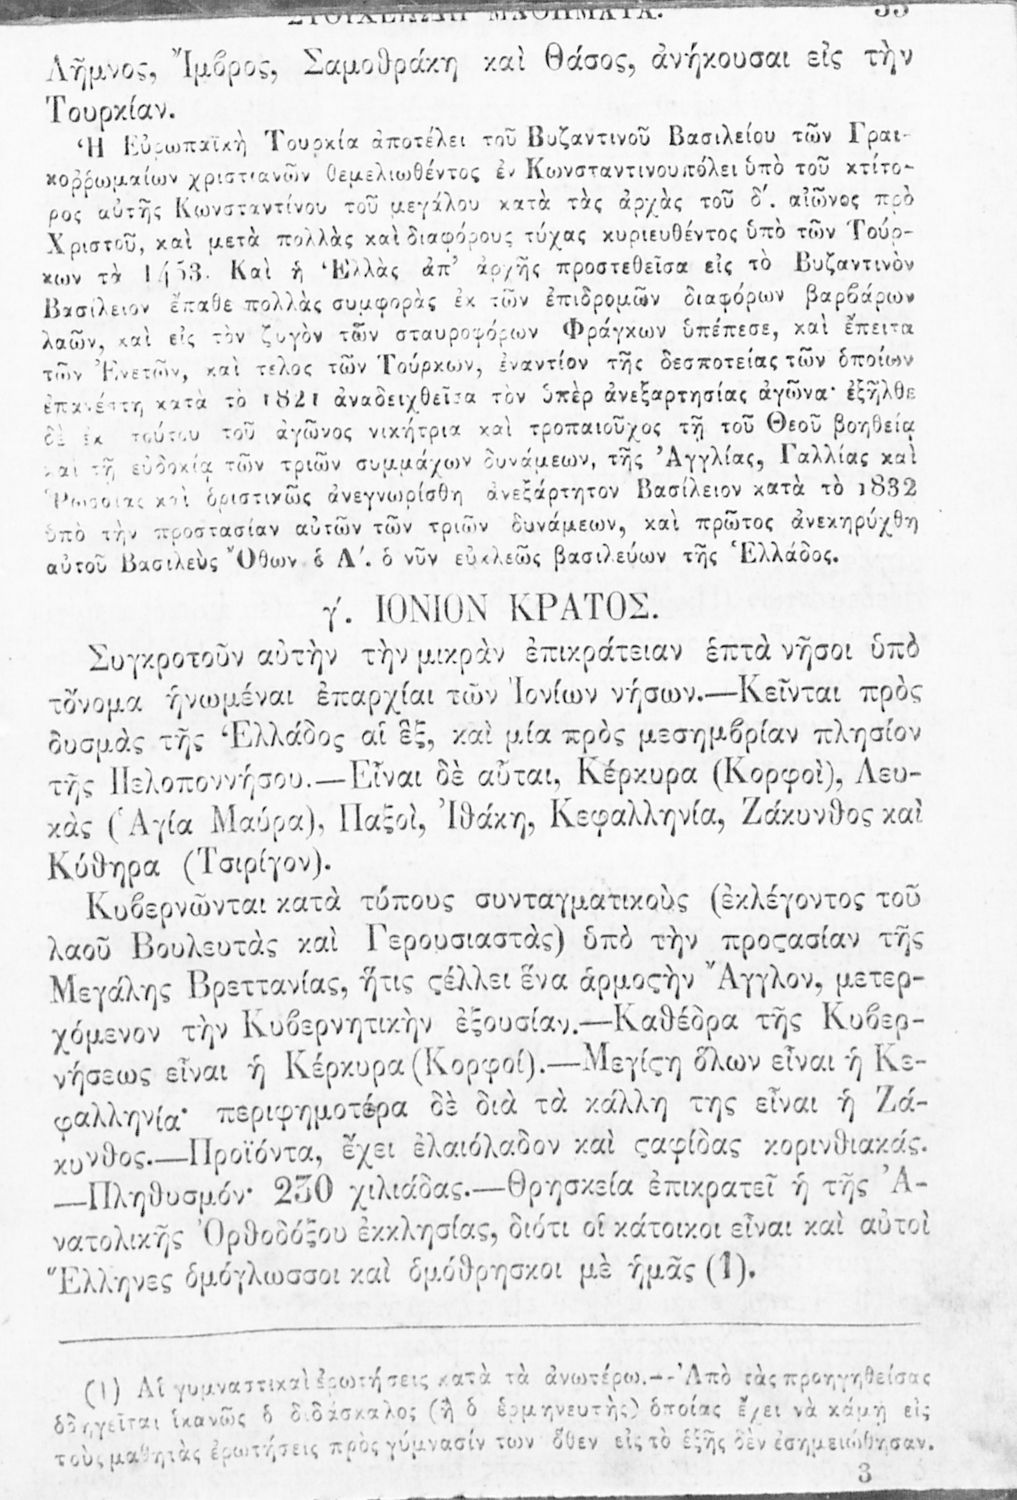 ΣΤΟΙΧΕΙΩΔΗ ΜΑΘΗΜΑΤΑ. 33
Λῆμνος, Ἴμβρος, Σαμοθράκη καὶ Θάσος, ἀνήκουσαι εἰς τὴν
Τουρκίαν.
Ἡ Εὐρωπαϊκὴ Τουρκία ἀποτέλει τοῦ Βυζαντινοῦ Βασιλείου τῶν Γραι-
κοῤῥωμαίων χριστιανῶν θεμελιωθέντος ἐν Κωνσταντινουπόλει ὑπὸ τοῦ κτίτο-
ρος αὐτῆς Κωνσταντίνου τοῦ μεγάλου κατὰ τὰς ἀρχὰς τοῦ δ΄. αἰῶνος πρὸ
Χριστοῦ, καὶ μετὰ πολλὰς καὶ διαφόρους τύχας κυριευθέντος ὑπὸ τῶν Τούρ-
κων τὰ 1453. Καὶ ἡ Ἑλλὰς ἀπ' ἀρχῆς προστεθεῖσα εἰς τὸ Βυζαντινὸν
Βασίλειον ἔπαθε πολλὰς συμφορὰς ἐκ τῶν ἐπιδρομῶν διαφόρων βαρβάρων
λαῶν, καὶ εἰς τὸν ζυγὸν τῶν σταυροφόρων Φράγκων ὑπέπεσε, καὶ ἔπειτα
τῶν Ἐνετῶν, καὶ τέλος τῶν Τούρκων, ἐναντίον τῆς δεσποτείας τῶν ὁποίων
ἐπανέστη κατὰ τὸ 1821 ἀναδειχθεῖσα τὸν ὑπὲρ ἀνεξαρτησίας ἀγῶνα· ἐξῆλθε
δὲ ἐκ τούτου τοῦ ἀγῶνος νικήτρια καὶ τροπαιοῦχος τῇ τοῦ Θεοῦ βοηθείᾳ
καὶ τῇ εὐδοκίᾳ τῶν τριῶν συμμάχων δυνάμεων, τῆς Ἀγγλίας, Γαλλίας καὶ
Ῥωσσίας καὶ ὁριστικῶς ἀνεγνωρίσθη ἀνεξάρτητον Βασίλειον κατὰ τὸ 1832
ὑπὸ τὴν προστασίαν αὐτῶν τῶν τριῶν δυνάμεων, καὶ πρῶτος ἀνεκηρύχθη
αὐτοῦ Βασιλεὺς Ὄθων ὁ Α΄. ὁ νῦν εὐκλεῶς βασιλεύων τῆς Ἑλλάδος.
γ΄. ΙΟΝΙΟΝ ΚΡΑΤΟΣ.
Συγκροτοῦν αὐτὴν τὴν μικρὰν ἐπικράτειαν ἑπτὰ νῆσοι ὑπὸ
τὄνομα ἡνωμέναι ἐπαρχίαι τῶν Ἰονίων νήσων.—Κεῖνται πρὸς
δυσμὰς τῆς Ἑλλάδος αἱ ἓξ, καὶ μία πρὸς μεσημβρίαν πλησίον
τῆς Πελοποννήσου.—Εἶναι δὲ αὗται, Κέρκυρα (Κορφοὶ), Λευ-
κὰς (Ἁγία Μαύρα), Παξοὶ, Ἰθάκη, Κεφαλληνία, Ζάκυνθος καὶ
Κύθηρα (Τσιρίγον).
Κυβερνῶνται κατὰ τύπους συνταγματικοὺς (ἐκλέγοντος τοῦ
λαοῦ Βουλευτὰς καὶ Γερουσιαστὰς) ὑπὸ τὴν προϛασίαν τῆς
Μεγάλης Βρεττανίας, ἥτις ϛέλλει ἕνα ἁρμοϛὴν Ἄγγλον, μετερ-
χόμενον τὴν Κυβερνητικὴν ἐξουσίαν.—Καθέδρα τῆς Κυβερ-
νήσεως εἶναι ἡ Κέρκυρα (Κορφοί).—Μεγίϛη ὅλων εἶναι ἡ Κε-
φαλληνία· περιφημοτέρα δὲ διὰ τὰ κάλλη της εἶναι ἡ Ζά-
κυνθος.—Προϊόντα, ἔχει ἐλαιόλαδον καὶ ϛαφίδας κορινθιακάς.
—Πληθυσμόν· 230 χιλιάδας.—Θρησκεία ἐπικρατεῖ ἡ τῆς Ἀ-
νατολικῆς Ὀρθοδόξου ἐκκλησίας, διότι οἱ κάτοικοι εἶναι καὶ αὐτοὶ
Ἕλληνες ὁμόγλωσσοι καὶ ὁμόθρησκοι μὲ ἡμᾶς (1).
(1) Αἱ γυμναστικαὶ ἐρωτήσεις κατὰ τὰ ἀνωτέρω.—Ἀπὸ τὰς προηγηθείσας
ὁδηγεῖται ἱκανῶς ὁ διδάσκαλος (ἢ ὁ ἑρμηνευτὴς) ὁποίας ἔχει νὰ κάμῃ εἰς
τοὺς μαθητὰς ἐρωτήσεις πρὸς γύμνασίν των ὅθεν εἰς τὸ ἑξῆς δὲν ἐσημειώθησαν.
3